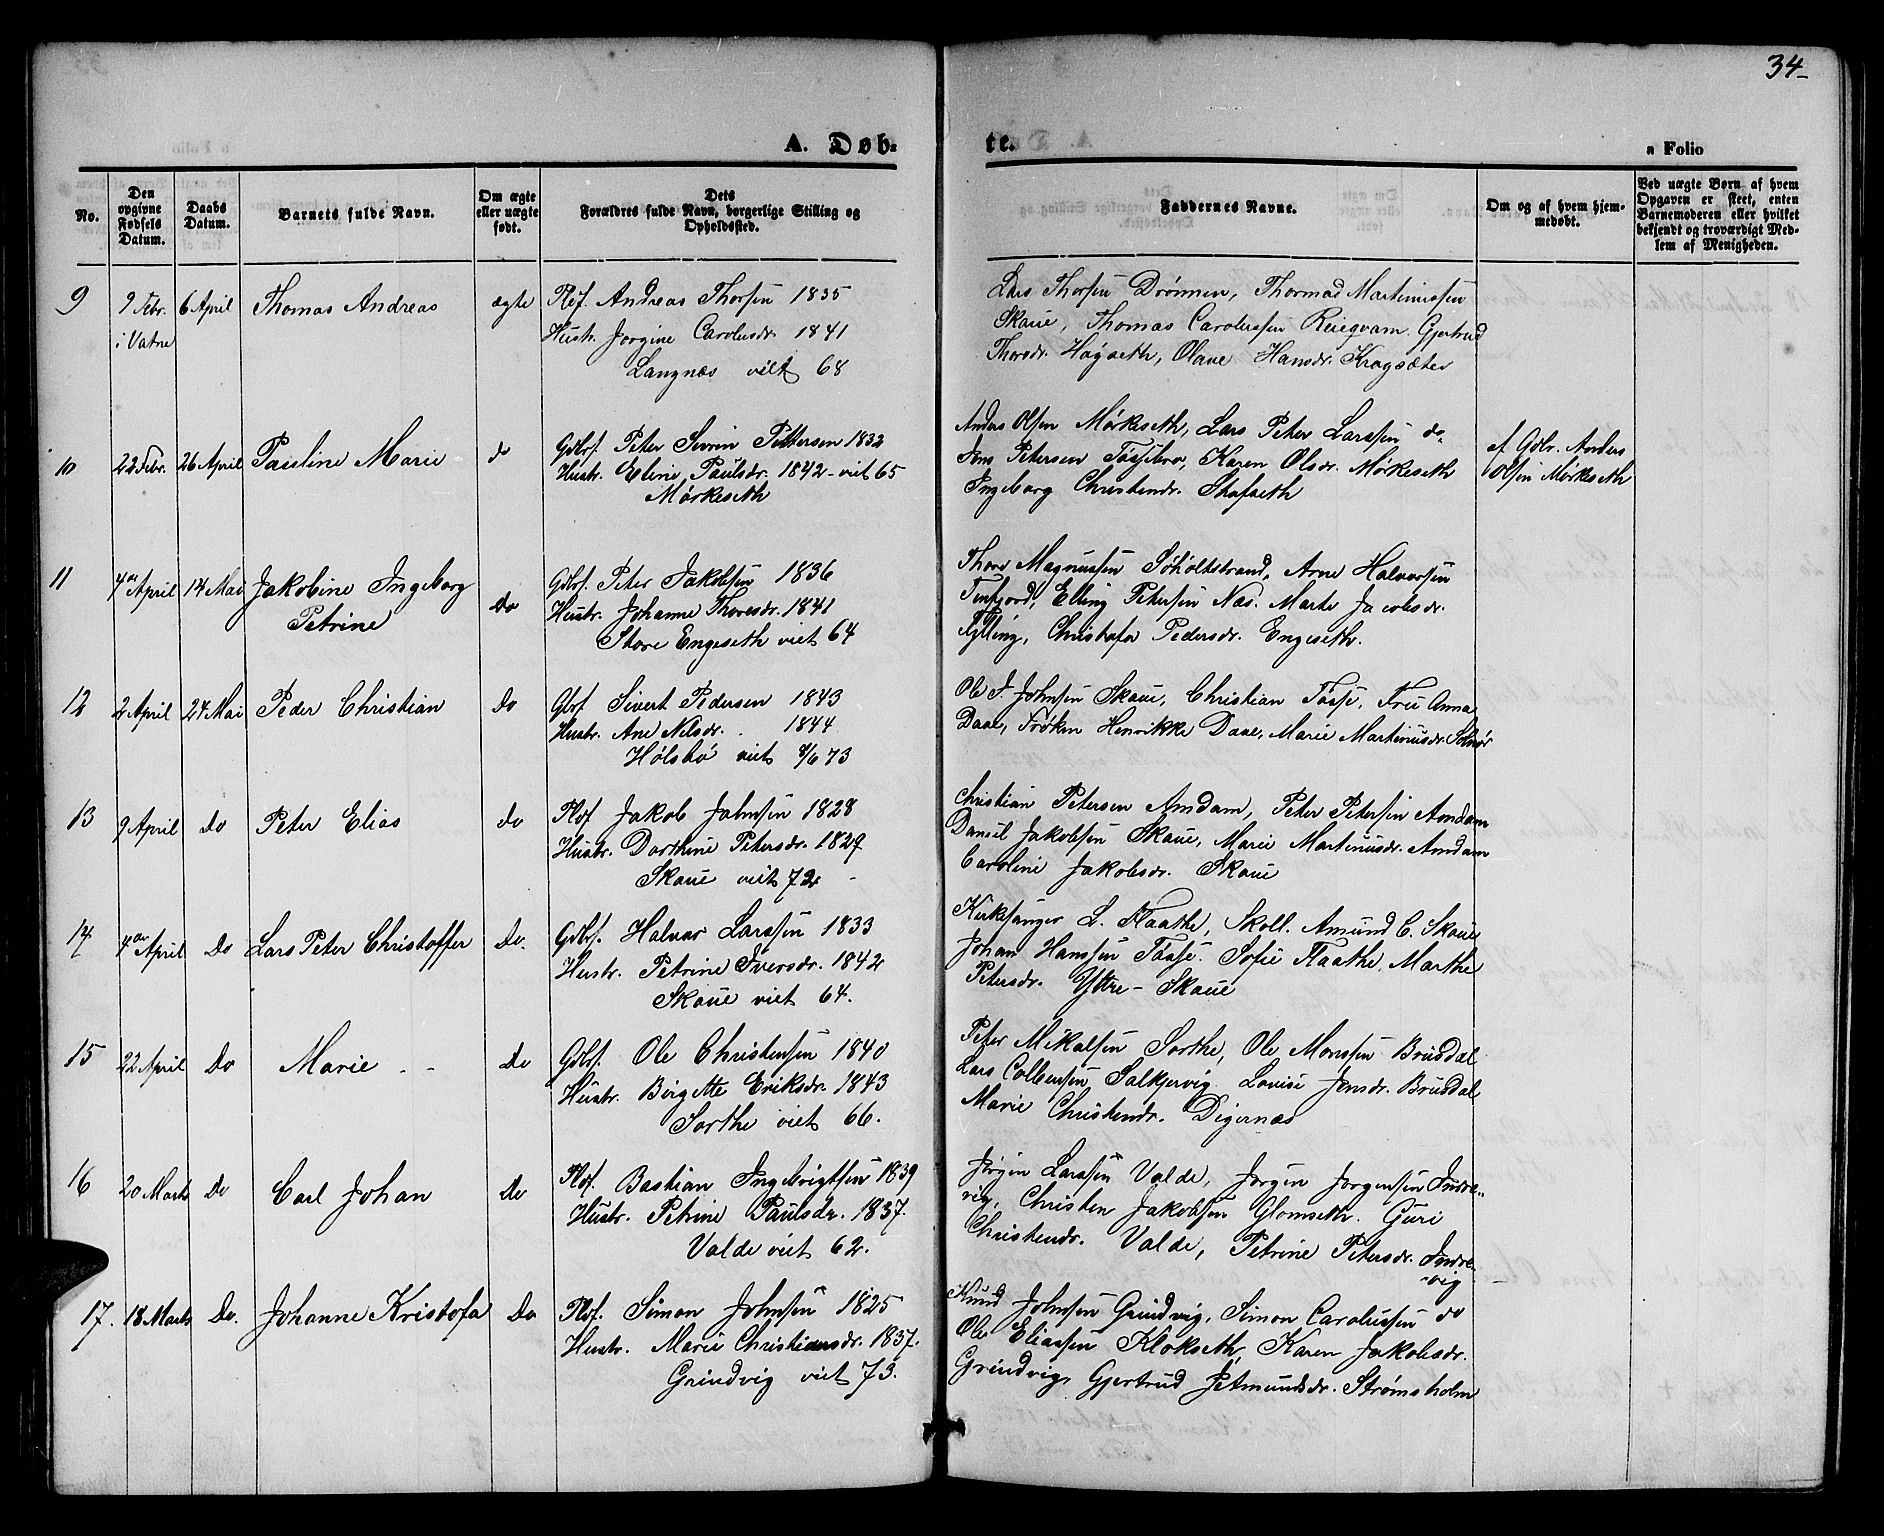 34
A. Døb-
te.
a Folio
No.
Den opgivne Fødsels Datum.
Daabs Datum.
Barnets fulde Navn.
Om ægte eller uægte født.
Dets Forældres fulde Navn, borgerlige Stilling og Opholdssted.
Faddernes Navne.
Om og af hvem hjemmedøbt.
Ved uægte Børn af hvem Opgaven er skeet, enten Barnemoderen eller hvilket bekjendt og troværdigt Medlem af Menigheden.
9 9 Febr. i Vatne 6 April Thomas Andreas ægte
Andreas Thorsen 1835
Hustr. Jorgine Carolusdr. 1841
Langnæs viet 68
Lars Thorsen Drønnen, Thormad Martinussen
Skaue, Thomas Carolussen Reiegvam. Gjertrud
Thorsdr. Høgseth, Olave Hansdr. Kragsæter
10 22 Febr. 26 April Pauline Marie do
Gdbrf. Peter Sivrin Pettersen 1832
Hustr. Eline Paulsdr. 1842 - viet 65
Mørkeseth
Anders Olsen Mørkeseth, Lars Peter Larssen do.
Jens Petersen Tøssebro, Karen Olsdr. Mørkeseth
Ingeborg Christendr. Stafseth
af Gdbr. Anders
Olsen Mørkeseth
11 4de April 14 Mai Jakobine Ingeborg
Petrine
Do
Gdbrf. Peter Jakobsen 1836
Hustr. Johanne Thoresdr. 1841
Store Engeseth viet 64
Thore Magnussen Søholtstrand, Arne Halvorsen
Tenfjord, Elling Petersen Næs. Marte Jacobsdr.
Fylling, Christofa Pedersdr. Engeseth.
12 2 April 24 Mai Peder Christian Do
Gbrf Sivert Pedersen 1843
Hustr. Ane Nilsdr. 1844
Hølsbø viet 8/6 73
Ole J. Johnsen Skaue, Christian Tøsse, Fru Anna
Daae, Frøken Henrikke Daae, Marie Martinusdr. Solnør
13 9 April Do Peter Elias do
Plsf Jakob Johnsen 1828
Hustr. Dorthine Petersdr. 1829
Skaue viet 72
Christian Petersen Amdam, Peter Petersen Amdam
Daniel Jakobsen Skaue, Marie Martinusdr. Amdam
Caroline Jakobsdr. Skaue
14 4de April Do Lars Peter Christoffer Do.
Gdbrf. Halvar Larssen 1833
Hustr. Petrine Iversdr. 1842
Skaue viet 64.
Kirkesanger L. Flaathe, Skoll. Amund C. Skaue
Johan Hanssen Tøsse. Sofie Flaathe. Marthe
Petersdr. Yttre - Skaue
15 22 April Do Marie Do
Gdbrf. Ole Christensen 1840
Hustr. Birgitte Eriksdr. 1843
Sorthe viet 66.
Peter Mikalsen Sorthe, Ole Monssen Brusdal
Lars Colbensen Salkjervig. Lovise Jensdr. Brusdal
Marie Christendr. Digernæs
16 20 Marts Do Carl Johan Do
Plsf. Bastian Ingebrigtsen 1839
Hustr. Petrine Paulsdr. 1837.
Valde viet 62.
Jørgen Larssen Valde, Jørgen Jørgensen Indre-
vig, Christen Jakobsen Glomseth. Guri
Christendr. Valde, Petrine Petersdr. Indre-
vig
17. 18 Marts Do. Johanne Kristofa Do
Plsf. Simon Johnsen 1825
Hustr. Marie Christiansdr. 1837.
Grindvig viet 73.
Knud Johnsen Grindvig, Simon Carolussen do
Ole Eliassen Klokseth, Karen Jakobsdr.
Grindvig, Gjertrud Jetmundsdr. Strømsholm